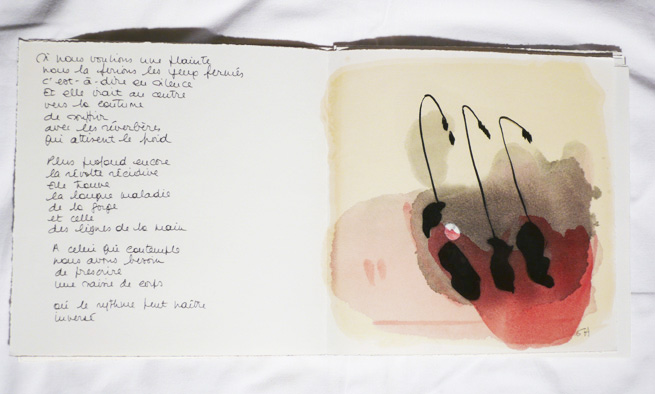 Si nous voulions une plainte
nous la ferions les yeux fermés
c'est-à-dire en silence
Et elle irait au centre
vers la coutume
de souffrir
avec les réverbères
qui attisent le froid
Plus profond encore
la révolte récidive
Elle trouve
la longue maladie
de la forge
et celle
des lignes de la main
A celui qui contemple
nous avons besoin
de prescrire
une de corps
où le rythme peut naître
inversé